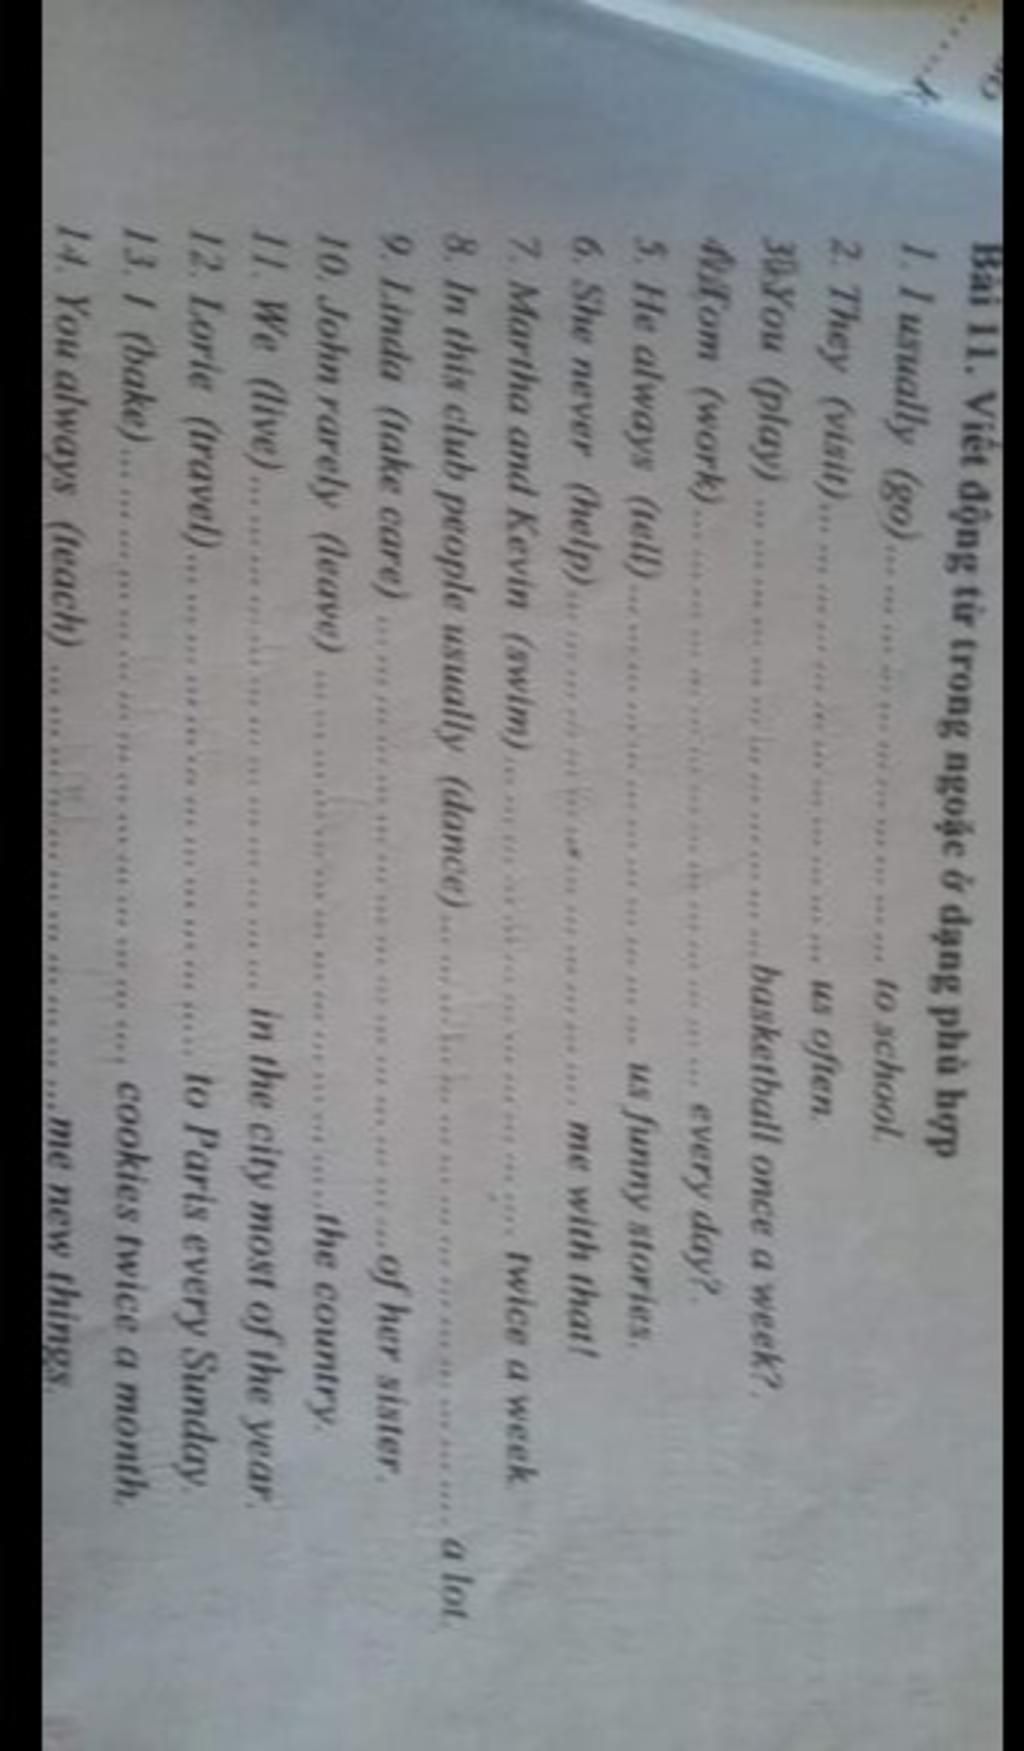 Bài 11. Viết động từ trong ngoặc ở dạng phù hợp
1. I usually (go)........................... to school.
2. They (visit)........................... us often.
3. You (play) ...........................basketball once a week?.
4. Tom (work)........................... every day?.
5. He always (tell) ........................... us funny stories.
6. She never (help)........................... me with that!
7. Martha and Kevin (swim)........................... twice a week.
8. In this club people usually (dance)........................... a lot.
9. Linda (take care) ...........................of her sister.
10. John rarely (leave) ...........................the country.
11. We (live)........................... in the city most of the year.
12. Lorie (travel)........................... to Paris every Sunday.
13. I (bake)........................... cookies twice a month.
14. You always (teach) ...........................me new things.